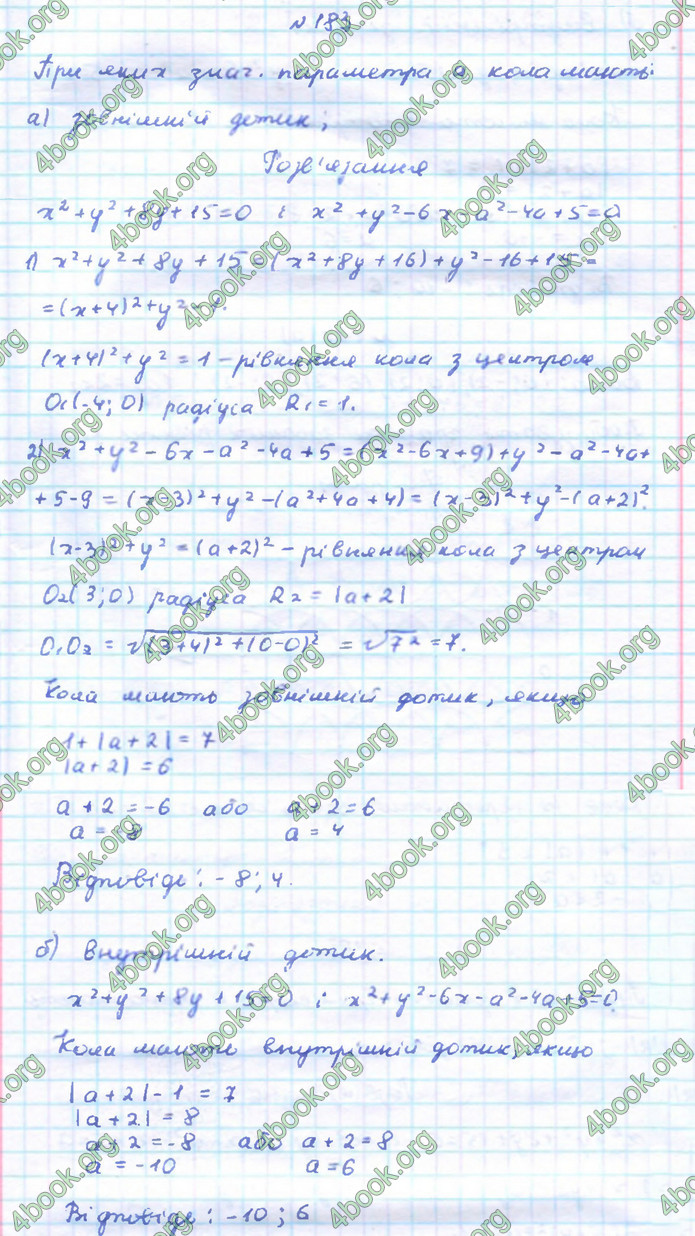 № 183
При яких знач. параметра a кола мають:
а) зовнішній дотик;
Розв'язання
x² + y² + 8y + 15 = 0 і x² + y² - 6x - a² - 4a + 5 = 0
1) x² + y² + 8y + 15 = (x² + 8y + 16) + y² - 16 + 15 =
= (x + 4)² + y² - 1.
(x + 4)² + y² = 1 – рівняння кола з центром
O₁(-4; 0) радіуса R₁ = 1.
2) x² + y² - 6x - a² - 4a + 5 = (x² - 6x + 9) + y² - a² - 4a +
+ 5 - 9 = (x - 3)² + y² - (a² + 4a + 4) = (x - 3)² + y² - (a + 2)².
(x - 3)² + y² = (a + 2)² – рівняння кола з центром
O₂(3; 0) радіуса R₂ = |a + 2|
O₁O₂ = √((3 + 4)² + (0 - 0)²) = √7² = 7.
Кола мають зовнішній дотик, якщо
1 + |a + 2| = 7
|a + 2| = 6
a + 2 = -6 або a + 2 = 6
a = -8 a = 4
Відповідь: -8; 4.
б) внутрішній дотик.
x² + y² + 8y + 15 = 0 і x² + y² - 6x - a² - 4a + 5 = 0.
Кола мають внутрішній дотик, якщо
|a + 2| - 1 = 7
|a + 2| = 8
a + 2 = -8 або a + 2 = 8
a = -10 a = 6
Відповідь: -10; 6